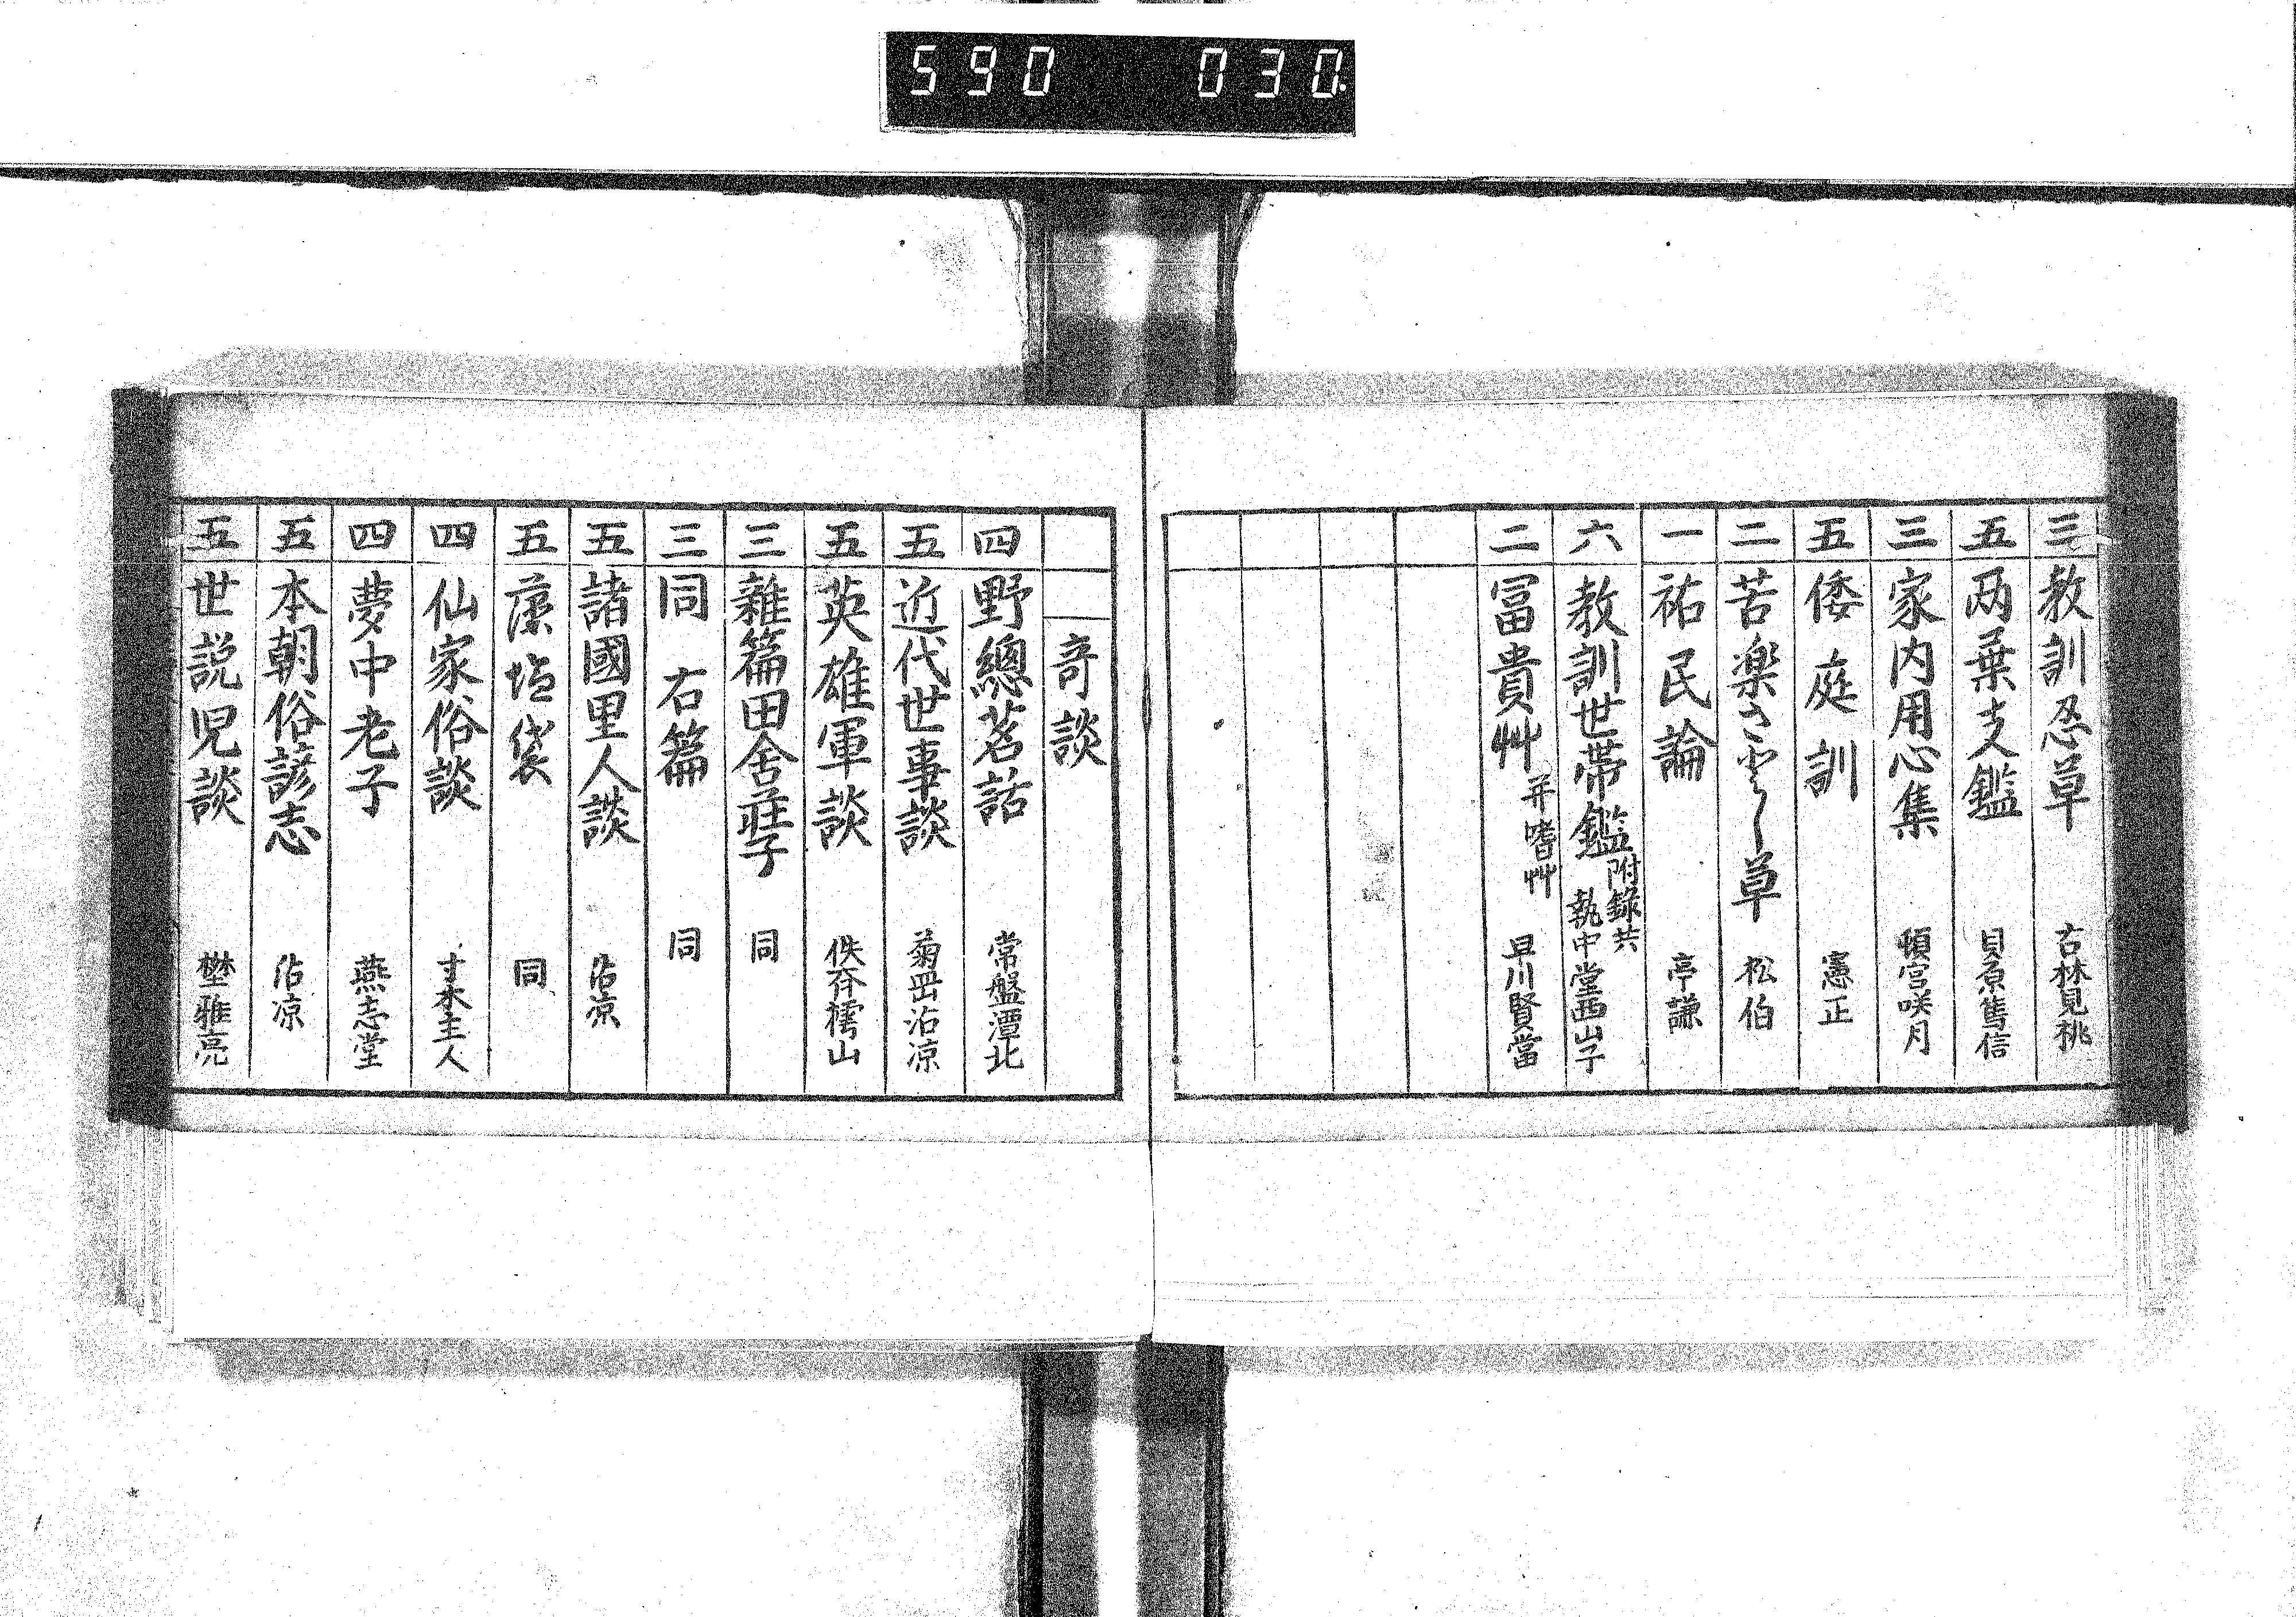 590 030
三 教訓忍草 古林見桃
五 両葉支鑑 貝原篤信
三 家内用心集 頓宮咲月
五 倭庭訓 憲正
二 苦楽 草 松伯
一 祐民論 亭謙
六 教訓世帯鑑 附録共 執中堂西山子
二 冨貴艸 并嗜艸 早川賢當
奇談
四 野總茗話 常盤潭北
五 近代世事談 菊岡沾凉
五 英雄軍談 佚斉樗山
三 雜篇田舍莊子 同
三 同 右篇 同
五 諸國里人談 沾凉
五 藻塩袋 同
四 仙家俗談 寸木主人
四 夢中老子 燕志堂
五 本朝俗諺志 沾凉
五 世説児談 樊雅亮